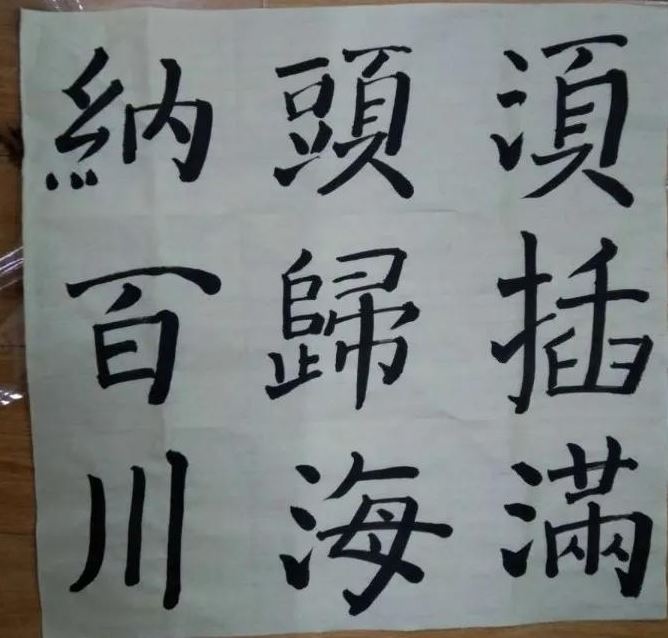 須插滿
頭歸海
納百川